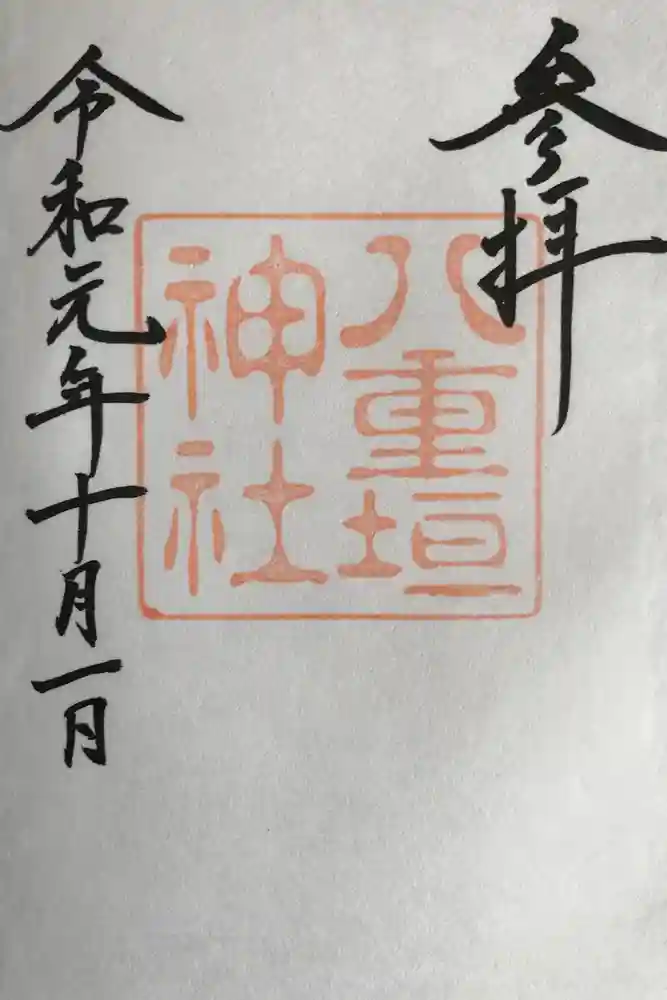 参拝
八重垣
神社
令和元年十月一日